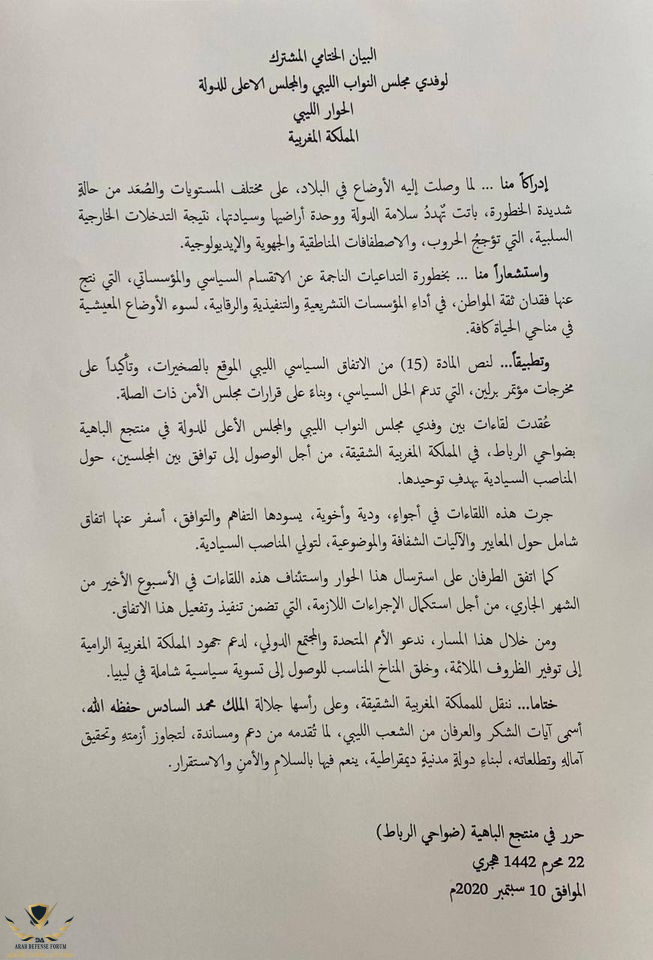 البيان الختامي المشترك
لوفدي مجلس النواب الليبي والمجلس الاعلى للدولة
الحوار الليبي
المملكة المغربية
إدراكاً منا ... لما وصلت إليه الأوضاع في البلاد، على مختلف المستويات والصُعَد من حالةٍ
شديدة الخطورة، باتت تُهددُ سلامة الدولة ووحدة أراضيها وسيادتها، نتيجة التدخلات الخارجية
السلبية، التي تؤججُ الحروب، والاصطفافات المناطقية والجهوية والإيديولوجية.
واستشعاراً منا ... بخطورة التداعيات الناجمة عن الانقسام السياسي والمؤسساتي، التي نتج
عنها فقدان ثقة المواطن، في أداءِ المؤسسات التشريعيةِ والتنفيذيةِ والرقابية، لسوء الأوضاع المعيشية
في مناحي الحياة كافة.
وتطبيقاً... لنص المادة (15) من الاتفاق السياسي الليبي الموقع بالصخيرات، وتأكيداً على
مخرجات مؤتمر برلين، التي تدعم الحل السياسي، وبناءً على قرارات مجلس الأمن ذات الصلة.
عُقدت لقاءات بين وفدي مجلس النواب الليبي والمجلس الأعلى للدولة في منتجع الباهية
بضواحي الرباط، في المملكة المغربية الشقيقة، من أجل الوصول إلى توافق بين المجلسين، حول
المناصب السيادية بهدفِ توحيدها.
جرت هذه اللقاءات في أجواءٍ، ودية وأخوية، يسودها التفاهم والتوافق، أسفر عنها اتفاق
شامل حول المعايير والآليات الشفافة والموضوعية، لتولي المناصب السيادية.
كما اتفق الطرفان على استرسال هذا الحوار واستئناف هذه اللقاءات في الأسبوع الأخير من
الشهر الجاري، من أجل استكمال الإجراءات اللازمة، التي تضمن تنفيذ وتفعيل هذا الاتفاق.
ومن خلال هذا المسار، ندعو الأمم المتحدة والمجتمع الدولي، لدعم جهود المملكة المغربية الرامية
إلى توفير الظروف الملائمة، وخلق المناخ المناسب للوصول إلى تسوية سياسية شاملة في ليبيا.
ختاما... ننقل للمملكة المغربية الشقيقة، وعلى رأسها جلالة الملك محمد السادس حفظه الله،
أسمى آيات الشكر والعرفان من الشعب الليبي، لما تُقدمه من دعم ومساندة، لتجاوز أزمتهِ وتحقيق
آمالهِ وتطلعاته، لبناءِ دولةٍ مدنيةٍ ديمقراطية، ينعم فيها بالسلامِ والأمنِ والاستقرار.
حرر في منتجع الباهية (ضواحي الرباط)
22 محرم 1442 هجري
الموافق 10 سبتمبر 2020م
ARAB DEFENSE FORUM